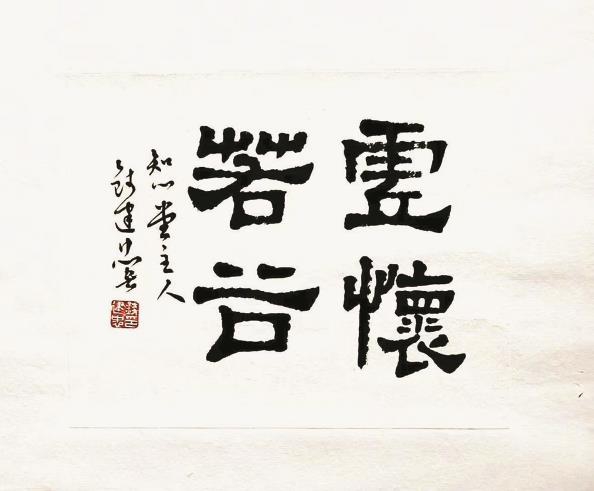 虛懷
若谷
知心堂主人
建忠書